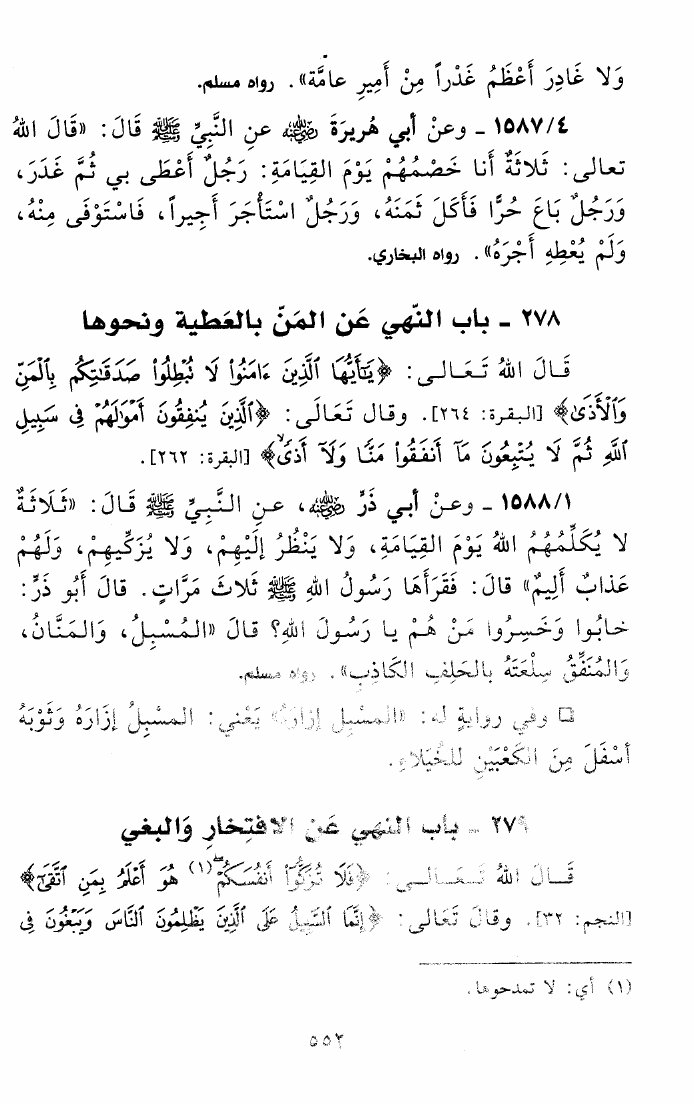 وَلا غَادِرَ أَعْظَمُ غَدْراً مِنْ أَمِيرِ عامَّة». رواه مسلم.
١٥٨٧/٤ ـ وعنْ أبي هُريرَةَ رضي الله عنه عنِ النَّبِيِّ ﷺ قَالَ: «قَالَ اللهُ
تعالى: ثَلاثَةٌ أنا خَصْمُهُمْ يَوْمَ القِيَامَةِ: رَجُلٌ أَعْطَى بي ثُمَّ غَدَرَ،
وَرَجُلٌ بَاعَ حُرًّا فَأَكَلَ ثَمَنَهُ، وَرَجُلٌ اسْتَأْجَرَ أَجِيراً، فَاسْتَوْفَى مِنْهُ،
وَلَمْ يُعْطِهِ أَجْرَهُ». رواه البخاري.
٢٧٨ ـ باب النّهي عَن المَنّ بالعَطية ونحوها
قَالَ اللهُ تَعَالى: ﴿يَٰٓأَيُّهَا ٱلَّذِينَ ءَامَنُوا۟ لَا تُبْطِلُوا۟ صَدَقَٰتِكُم بِٱلْمَنِّ
وَٱلْأَذَىٰ﴾ [البقرة: ٢٦٤]. وقال تَعَالَى: ﴿ٱلَّذِينَ يُنفِقُونَ أَمْوَٰلَهُمْ فِى سَبِيلِ
ٱللَّهِ ثُمَّ لَا يُتْبِعُونَ مَآ أَنفَقُوا۟ مَنًّا وَلَآ أَذًىۙ﴾ [البقرة: ٢٦٢].
١٥٨٨/١ ـ وعنْ أبي ذَرٍّ رضي الله عنه، عنِ النَّبِيِّ ﷺ قَالَ: «ثَلَاثَةٌ
لا يُكَلِّمُهُمُ اللهُ يَوْمَ القِيَامَةِ، وَلَا يَنْظُرُ إلَيْهِمْ، وَلا يُزَكِّيهِمْ، وَلَهُمْ
عَذابٌ أَلِيمٌ» قالَ: فَقَرَأَهَا رَسُولُ اللهِ ﷺ ثَلاثَ مَرَّاتٍ. قالَ أَبُو ذَرٍّ:
خابُوا وَخَسِرُوا مَنْ هُمْ يا رَسُولَ اللهِ؟ قالَ «المُسْبِلُ، وَالمَنَّانُ،
وَالمُنَفِّقُ سِلْعَتَهُ بالحَلِفِ الكَاذِبِ». رواه مسلم.
□ وفي روايةٍ له: «المسْبِل إزارَهُ» يَعْني: المسْبِلُ إزَارَهُ وَثَوْبَهُ
أسْفَلَ مِنَ الكَعْبَيْنِ للخُيَلاءِ.
٢٧٩ ـ باب النهي عَنِ الافتِخارِ وَالبغي
قَالَ اللهُ تَعَالى: ﴿فَلَا تُزَكُّوٓا۟ أَنفُسَكُمْۖ(١) هُوَ أَعْلَمُ بِمَنِ ٱتَّقَىٰٓ﴾
[النجم: ٣٢]. وقالَ تَعَالى: ﴿إِنَّمَا ٱلسَّبِيلُ عَلَى ٱلَّذِينَ يَظْلِمُونَ ٱلنَّاسَ وَيَبْغُونَ فِى
(١) أي: لا تمدحوها.
٥٥٢